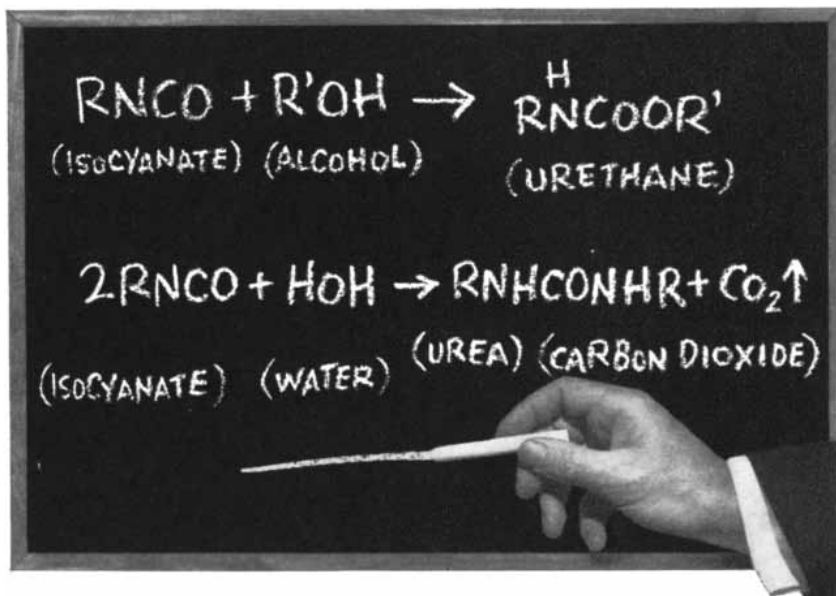 H
RNCO + R'OH → RNCOOR'
(ISOCYANATE) (ALCOHOL) (URETHANE)
2RNCO + HOH → RNHCONHR + CO₂↑
(ISOCYANATE) (WATER) (UREA) (CARBON DIOXIDE)